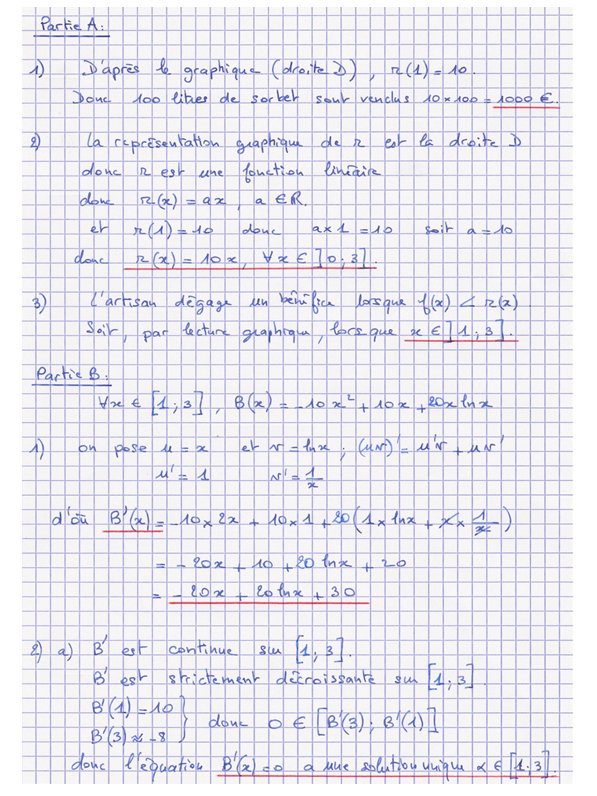 Partie A:
1) D'après le graphique (droite D), r(1) = 10.
Donc 100 litres de sorbet sont vendus 10×100 = 1000 €.
2) La représentation graphique de r est la droite D
donc r est une fonction linéaire
donc r(x) = ax, a ∈ ℝ.
et r(1) = 10 donc a×1 = 10 soit a = 10
donc r(x) = 10x, ∀x ∈ ]0;3].
3) L'artisan dégage un bénéfice lorsque f(x) < r(x)
Soit, par lecture graphique, lorsque x ∈ ]1;3].
Partie B:
∀x ∈ [1;3], B(x) = -10x² + 10x + 20x lnx
1) on pose u = x et v = lnx ; (uv)' = u'v + uv'
u' = 1 v' = 1/x
d'où B'(x) = -10×2x + 10×1 + 20(1×lnx + x×1/x)
= -20x + 10 + 20 lnx + 20
= -20x + 20 lnx + 30
2) a) B' est continue sur [1;3].
B' est strictement décroissante sur [1;3].
B'(1) = 10
B'(3) ≈ -8 } donc 0 ∈ [B'(3); B'(1)]
donc l'équation B'(x) = 0 a une solution unique α ∈ [1;3].